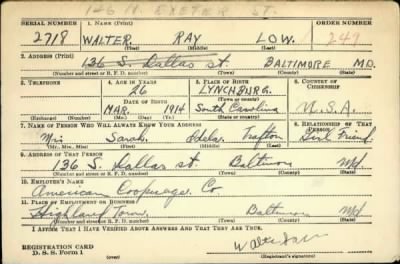 126 N. EXETER ST.
SERIAL NUMBER 1. NAME (Print) ORDER NUMBER
2718 WALTER RAY LOW. 249
(First) (Middle) (Last)
2. ADDRESS (Print)
136 S. Dallas St. BALTIMORE MD.
(Number and street or R. F. D. number) (Town) (County) (State)
3. TELEPHONE 4. AGE IN YEARS 5. PLACE OF BIRTH 6. COUNTRY OF CITIZENSHIP
26 LYNCHBURG.
DATE OF BIRTH (Town or county)
MAR. 1914 South Carolina U.S.A.
(Exchange) (Number) (Mo.) (Day) (Yr.) (State or country)
7. NAME OF PERSON WHO WILL ALWAYS KNOW YOUR ADDRESS 8. RELATIONSHIP OF THAT PERSON
Sarah Girl Friend
(Mr., Mrs., Miss) (First) (Middle) (Last)
9. ADDRESS OF THAT PERSON
136 S. Dallas St. Baltimore Md
(Number and street or R. F. D. number) (Town) (County) (State)
10. EMPLOYER'S NAME
American Cooperage Co
11. PLACE OF EMPLOYMENT OR BUSINESS
Highland Town Baltimore Md
(Number and street or R. F. D. number) (Town) (County) (State)
I AFFIRM THAT I HAVE VERIFIED ABOVE ANSWERS AND THAT THEY ARE TRUE.
REGISTRATION CARD Walter Low
D. S. S. Form 1 (Registrant's signature)